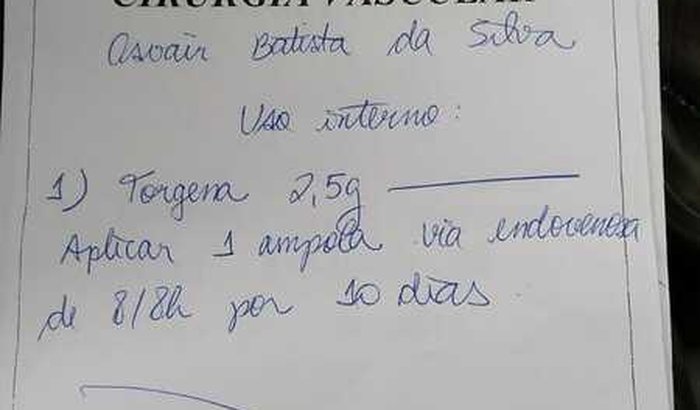 CIRURGIA VASCULAR
Osvair Batista da Silva
Uso interno:
1) Torgena 2,5g
Aplicar 1 ampola via endovenosa
de 8/8h por 10 dias.